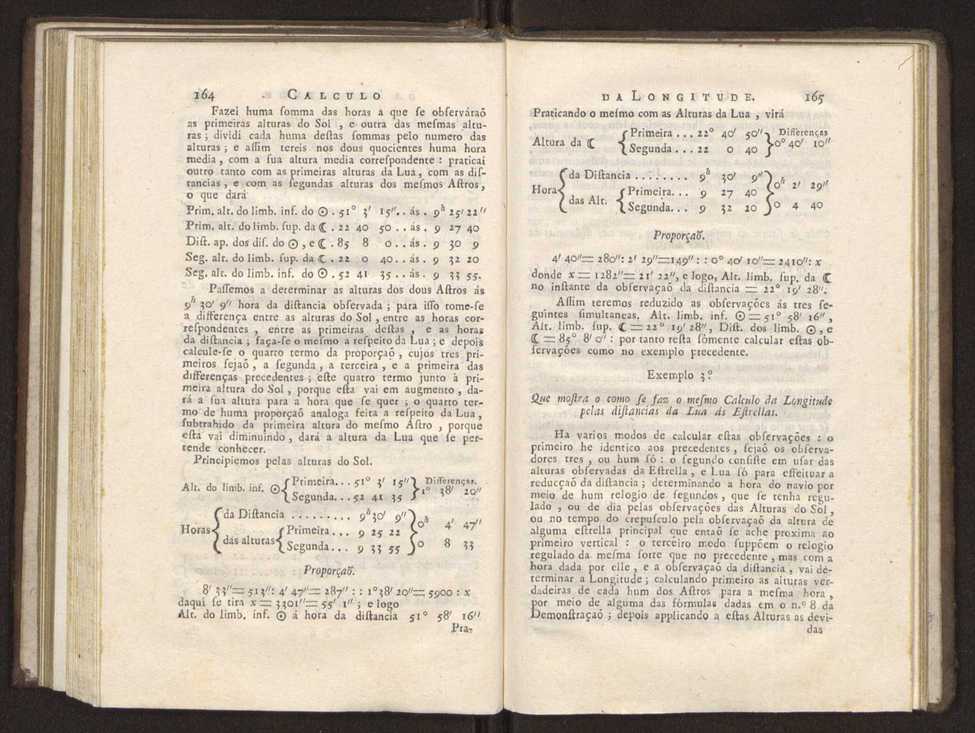 164 CALCULO
Fazei huma ſomma das horas a que ſe obſerváraõ
as primeiras alturas do Sol , e outra das meſmas altu-
ras ; dividi cada huma deſtas ſommas pelo numero das
alturas ; e aſſim tereis nos dous quocientes huma hora
media , com a ſua altura media correſpondente : praticai
outro tanto com as primeiras alturas da Lua, com as diſ-
tancias , e com as ſegundas alturas dos meſmos Aſtros ,
o que dará
Prim. alt. do limb. inf. do ☉ . 51° 3′ 15″ . . ás . 9ʰ 25′ 22″
Prim. alt. do limb. ſup. da ☾ . 22 40 50 . . ás . 9 27 40
Diſt. ap. dos diſ. do ☉ , e ☾ . 85 8 0 . . ás . 9 30 9
Seg. alt. do limb. ſup. da ☾ . 22 0 40 . . ás . 9 32 20
Seg. alt. do limb. inf. do ☉ . 52 41 35 . . ás . 9 33 55.
Paſſemos a determinar as alturas dos dous Aſtros ás
9ʰ 30′ 9″ hora da diſtancia obſervada ; para iſſo tome-ſe
a differença entre as alturas do Sol , entre as horas cor-
reſpondentes , entre as primeiras deſtas , e as horas
da diſtancia ; faça-ſe o meſmo a reſpeito da Lua ; e depois
calcule-ſe o quarto termo da proporçaõ , cujos tres pri-
meiros ſejaõ , a ſegunda , a terceira , e a primeira das
differenças precedentes ; eſte quatro termo junto á pri-
meira altura do Sol , porque eſta vai em augmento , da-
rá a ſua altura para a hora que ſe quer ; o quarto ter-
mo de huma proporçaõ analoga feita a reſpeito da Lua ,
ſubtrahido da primeira altura do meſmo Aſtro , porque
eſtá vai diminuindo , dará a altura da Lua que ſe per-
tende conhecer.
Principiemos pelas alturas do Sol.
Alt. do limb. inf. ☉ { Primeira . . . 51° 3′ 15″ } Differenças.
Segunda . . . 52 41 35 1° 38′ 20″
Horas { da Diſtancia . . . . . . . . . 9ʰ 30′ 9″ } 0ʰ 4′ 47″
das alturas { Primeira . . . 9 25 22
Segunda . . . 9 33 55 0 8 33
Proporçaõ.
8′ 33″ = 513″ : 4′ 47″ = 287″ : : 1° 38′ 20″ = 5900 : x
daqui ſe tira x = 3301″ = 55′ 1″ ; e logo
Alt. do limb. inf. ☉ á hora da diſtancia 51° 58′ 16″
Pra-
DA LONGITUDE. 165
Praticando o meſmo com as Alturas da Lua , virá
Altura da ☾ { Primeira . . . 22° 40′ 50″ } Differenças
Segunda . . . 22 0 40 0° 40′ 10″
Hora { da Diſtancia . . . . . . . . 9ʰ 30′ 9″ } 0ʰ 2′ 29″
das Alt. { Primeira . . . 9 27 40
Segunda . . . 9 32 20 0 4 40
Proporçaõ.
4′ 40″ = 280″ : 2′ 29″ = 149″ : : 0° 40′ 10″ = 2410″ : x
donde x = 1282″ = 21′ 22″, e logo, Alt. limb. ſup. da ☾
no inſtante da obſervaçaõ da diſtancia = 22° 19′ 28″.
Aſſim teremos reduzido as obſervações ás tres ſe-
guintes ſimultaneas. Alt. limb. inf. ☉ = 51° 58′ 16″ ,
Alt. limb. ſup. ☾ = 22° 19′ 28″, Diſt. dos limb. ☉ , e
☾ = 85° 8′ 0″ : por tanto reſta ſómente calcular eſtas ob-
ſervações como no exemplo precedente.
Exemplo 3.º
Que moſtra o como ſe faz o meſmo Calculo da Longitude
pelas diſtancias da Lua ás Eſtrellas.
Ha varios modos de calcular eſtas obſervações : o
primeiro he identico aos precedentes , ſejaõ os obſerva-
dores tres , ou hum ſó : o ſegundo conſiſte em uſar das
alturas obſervadas da Eſtrella , e Lua ſó para effeituar a
reducçaõ da diſtancia ; determinando a hora do navio por
meio de hum relogio de ſegundos , que ſe tenha regu-
lado , ou de dia pelas obſervações das Alturas do Sol ,
ou no tempo do crepuſculo pela obſervaçaõ da altura de
alguma eſtrella principal que entaõ ſe ache proxima ao
primeiro vertical : o terceiro modo ſuppõem o relogio
regulado da meſma ſorte que no precedente , mas com a
hora dada por elle , e a obſervaçaõ da diſtancia , vai de-
terminar a Longitude ; calculando primeiro as alturas ver-
dadeiras de cada hum dos Aſtros para a meſma hora ,
por meio de alguma das fórmulas dadas em o n.º 8 da
Demonſtraçaõ ; depois applicando a eſtas Alturas as devi-
das